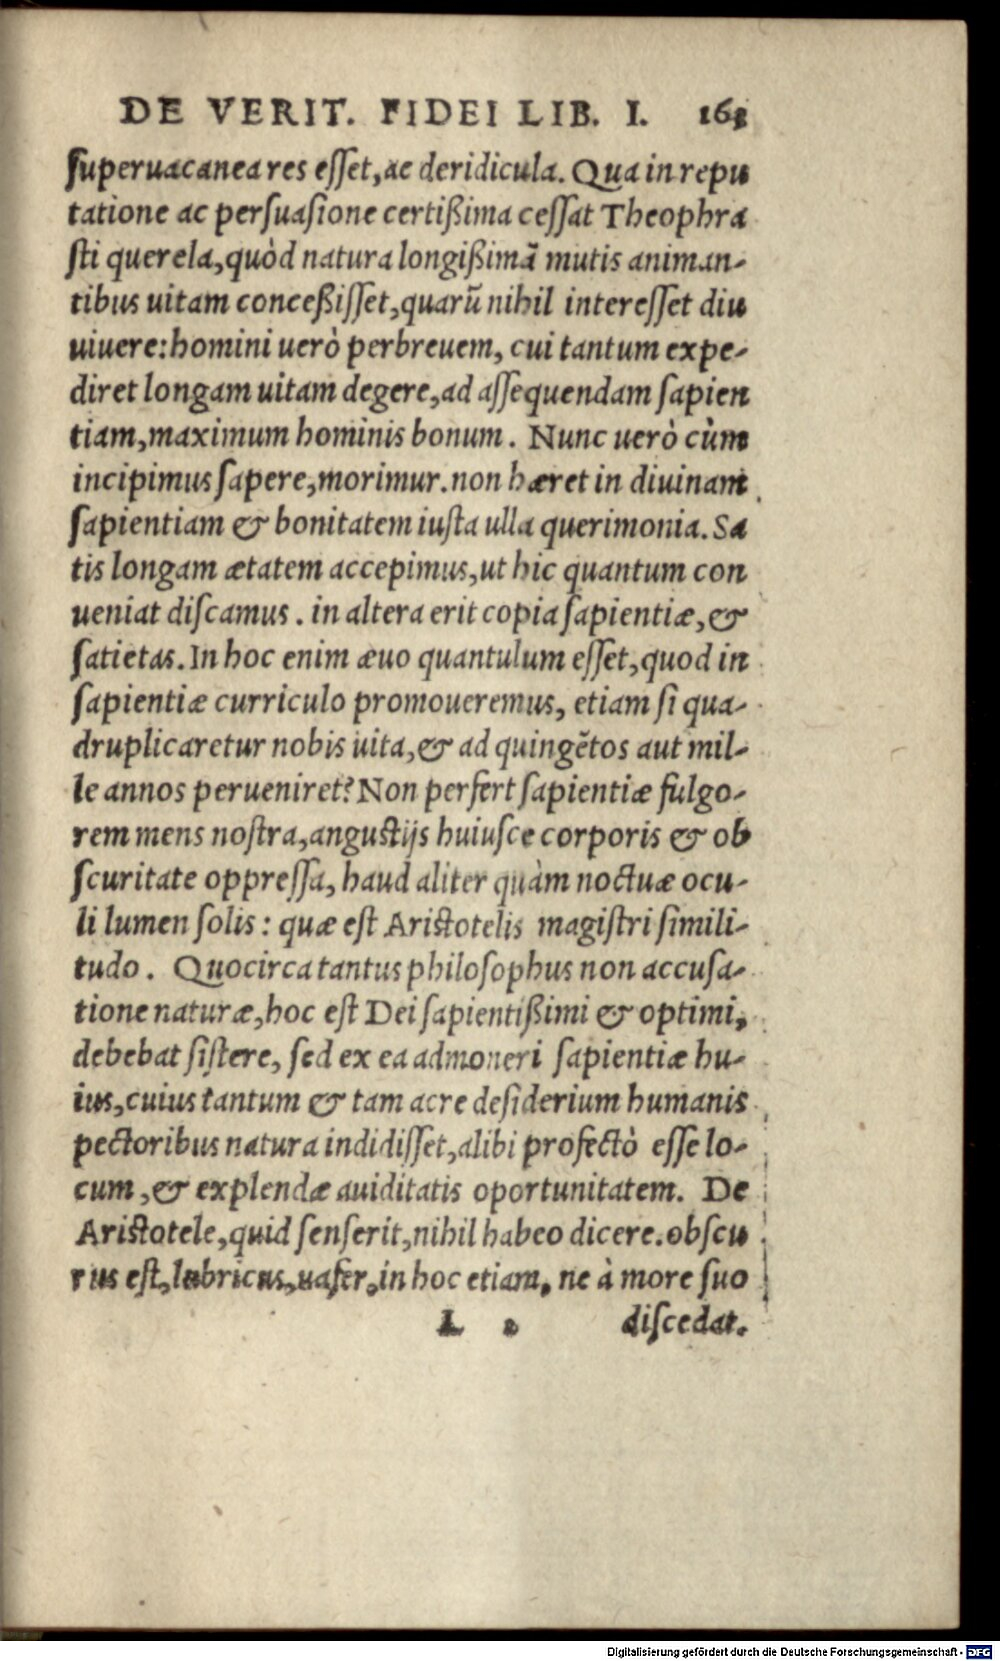 DE VERIT. FIDEI LIB. I. 163
superuacanea res esset, ac deridicula. Qua in repu
tatione ac persuasione certißima cessat Theophra
sti querela, quòd natura longißimā mutis animan-
tibus uitam conceßisset, quarū nihil interesset diu
uiuere: homini uerò perbreuem, cui tantum expe-
diret longam uitam degere, ad assequendam sapien
tiam, maximum hominis bonum. Nunc uerò cùm
incipimus sapere, morimur. non hæret in diuinam
sapientiam & bonitatem iusta ulla querimonia. Sa
tis longam ætatem accepimus, ut hic quantum con
ueniat discamus. in altera erit copia sapientiæ, &
satietas. In hoc enim æuo quantulum esset, quod in
sapientiæ curriculo promoueremus, etiam si qua-
druplicaretur nobis uita, & ad quingētos aut mil-
le annos perueniret? Non perfert sapientiæ fulgo-
rem mens nostra, angustijs huiusce corporis & ob
scuritate oppressa, haud aliter quàm noctuæ ocu-
li lumen solis: quæ est Aristotelis magistri simili-
tudo. Quocirca tantus philosophus non accusa-
tione naturæ, hoc est Dei sapientißimi & optimi,
debebat sistere, sed ex ea admoneri sapientiæ hu-
ius, cuius tantum & tam acre desiderium humanis
pectoribus natura indidisset, alibi profectò esse lo-
cum, & explendæ auiditatis oportunitatem. De
Aristotele, quid senserit, nihil habeo dicere. obscu
rus est, lubricus, uafer, in hoc etiam, ne à more suo
L 2 discedat.
Digitalisierung gefördert durch die Deutsche Forschungsgemeinschaft - DFG